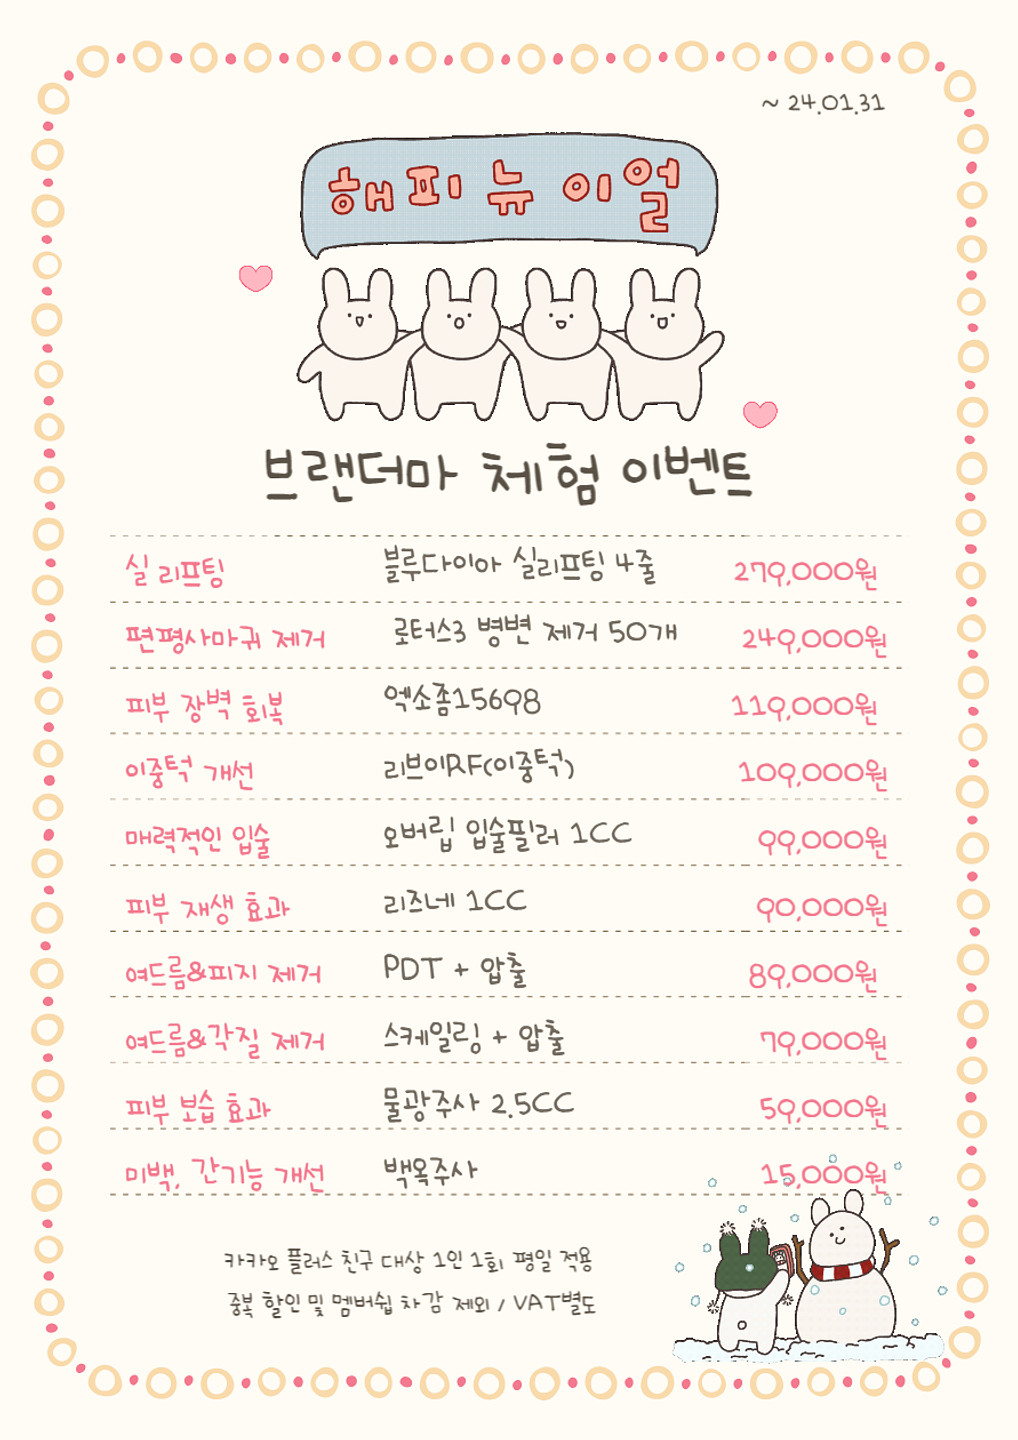 ~ 24.01.31
해피 뉴 이얼
브랜더마 체험 이벤트
실 리프팅 블루다이아 실리프팅 4줄 279,000원
편평사마귀 제거 로터스3 병변 제거 50개 249,000원
피부 장벽 회복 엑소좀15698 119,000원
이중턱 개선 리브이RF(이중턱) 109,000원
매력적인 입술 오버립 입술필러 1CC 99,000원
피부 재생 효과 리즈네 1CC 90,000원
여드름&피지 제거 PDT + 압출 89,000원
여드름&각질 제거 스케일링 + 압출 79,000원
피부 보습 효과 물광주사 2.5CC 59,000원
미백, 간기능 개선 백옥주사 15,000원
카카오 플러스 친구 대상 1인 1회 평일 적용
중복 할인 및 멤버쉽 차감 제외 / VAT별도